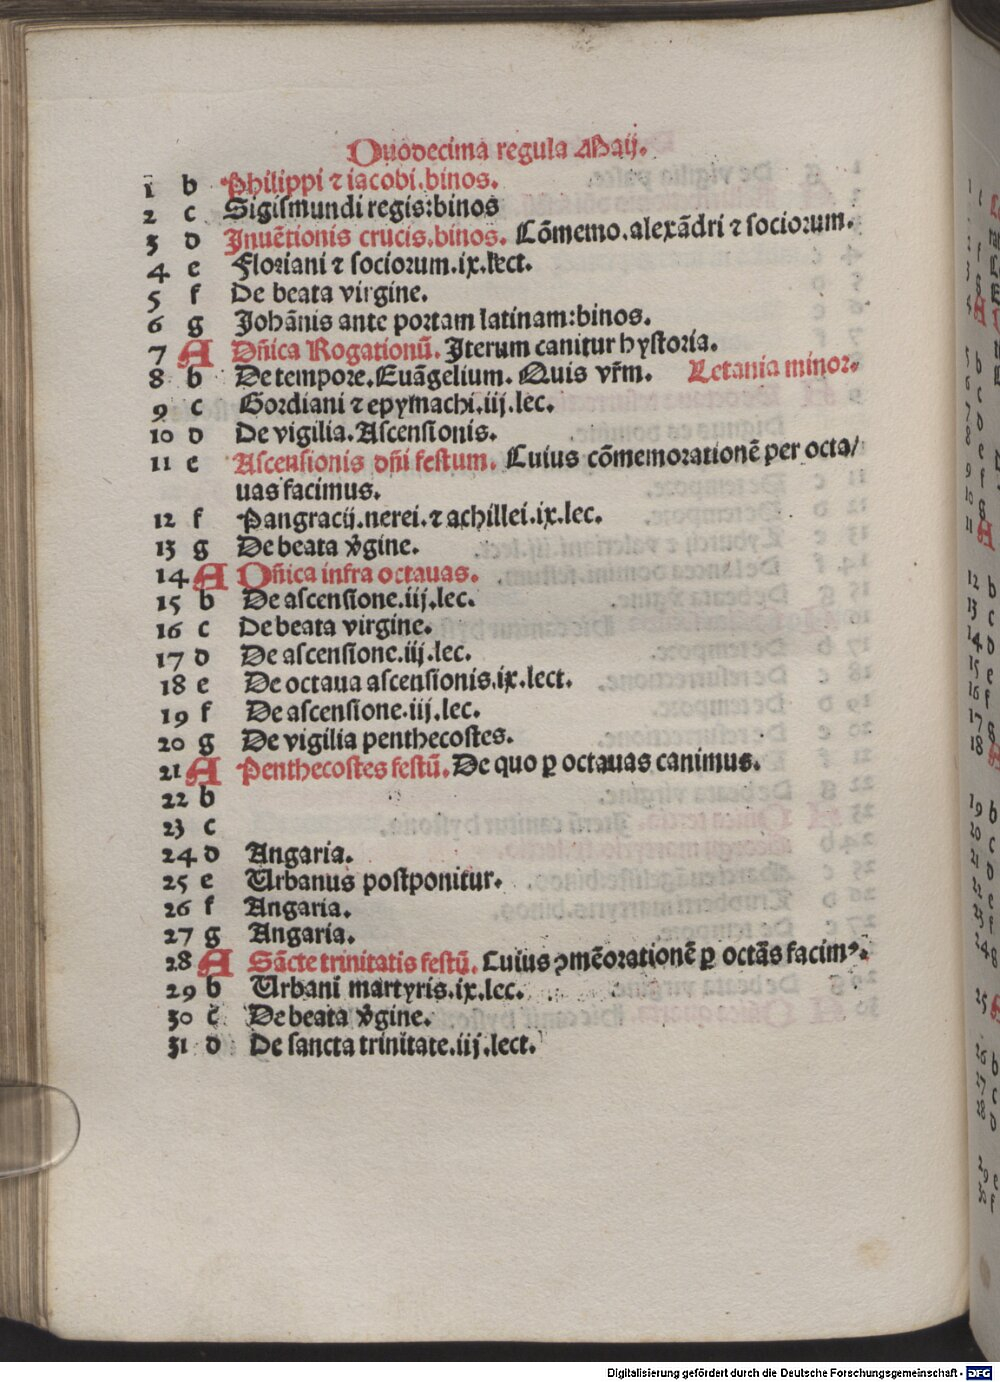 Duodecima regula Maij.
1 b Philippi ⁊ iacobi.binos.
2 c Sigiſmundi regis:binos
3 d Inuētionis crucis.binos. Cōmemo.alexādri ⁊ ſociorum.
4 e Floriani ⁊ ſociorum.ix.lect.
5 f De beata virgine.
6 g Johānis ante portam latinam:binos.
7 A Dn̄ica Rogationū. Iterum canitur hyſtoria.
8 b De tempore.Euāgelium. Quis vr̄m. Letania minor.
9 c Gordiani ⁊ epymachi.iij.lec.
10 d De vigilia.Aſcenſionis.
11 e Aſcenſionis dn̄i feſtum. Cuius cōmemorationē per octa/
uas facimus.
12 f Pangracij.nerei.⁊ achillei.ix.lec.
13 g De beata v̄gine.
14 A Dn̄ica infra octauas.
15 b De aſcenſione.iij.lec.
16 c De beata virgine.
17 d De aſcenſione.iij.lec.
18 e De octaua aſcenſionis.ix.lect.
19 f De aſcenſione.iij.lec.
20 g De vigilia penthecoſtes.
21 A Penthecoſtes feſtū. De quo ꝑ octauas canimus.
22 b
23 c
24 d Angaria.
25 e Urbanus poſtponitur.
26 f Angaria.
27 g Angaria.
28 A Sācte trinitatis feſtū. Cuius ꝯmēorationē ꝑ octās facimꝰ.
29 b Urbani martyris.ix.lec.
30 c De beata v̄gine.
31 d De ſancta trinitate.iij.lect.
Digitalisierung gefördert durch die Deutsche Forschungsgemeinschaft - DFG